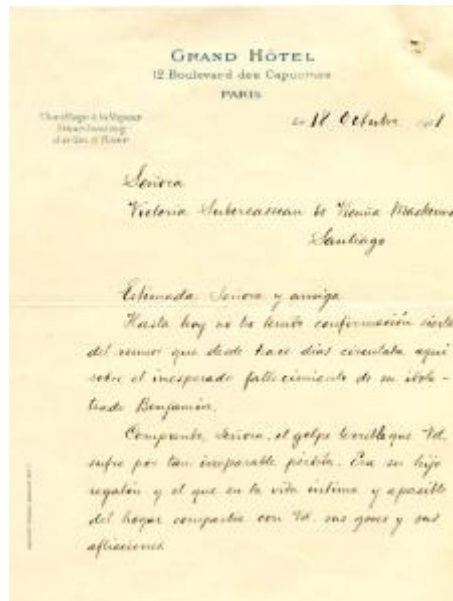 GRAND HÔTEL
12 Boulevard des Capucines
PARIS
Chauffage à la Vapeur
18 Octubre
Señora
Victoria Subercaseaux de Vicuña Mackenna
Santiago
Estimada Señora y amiga
Hasta hoy no he tenido confirmación cierta
del rumor que desde hace días circulaba aquí
sobre el inesperado fallecimiento de su idola-
trado Benjamín.
Comprendo, Señora, el golpe terrible que Vd.
sufre por tan irreparable pérdida. Era su hijo
regalón y el que en la vida íntima y apasible
del hogar compartía con Vd. sus goces y sus
aflicciones